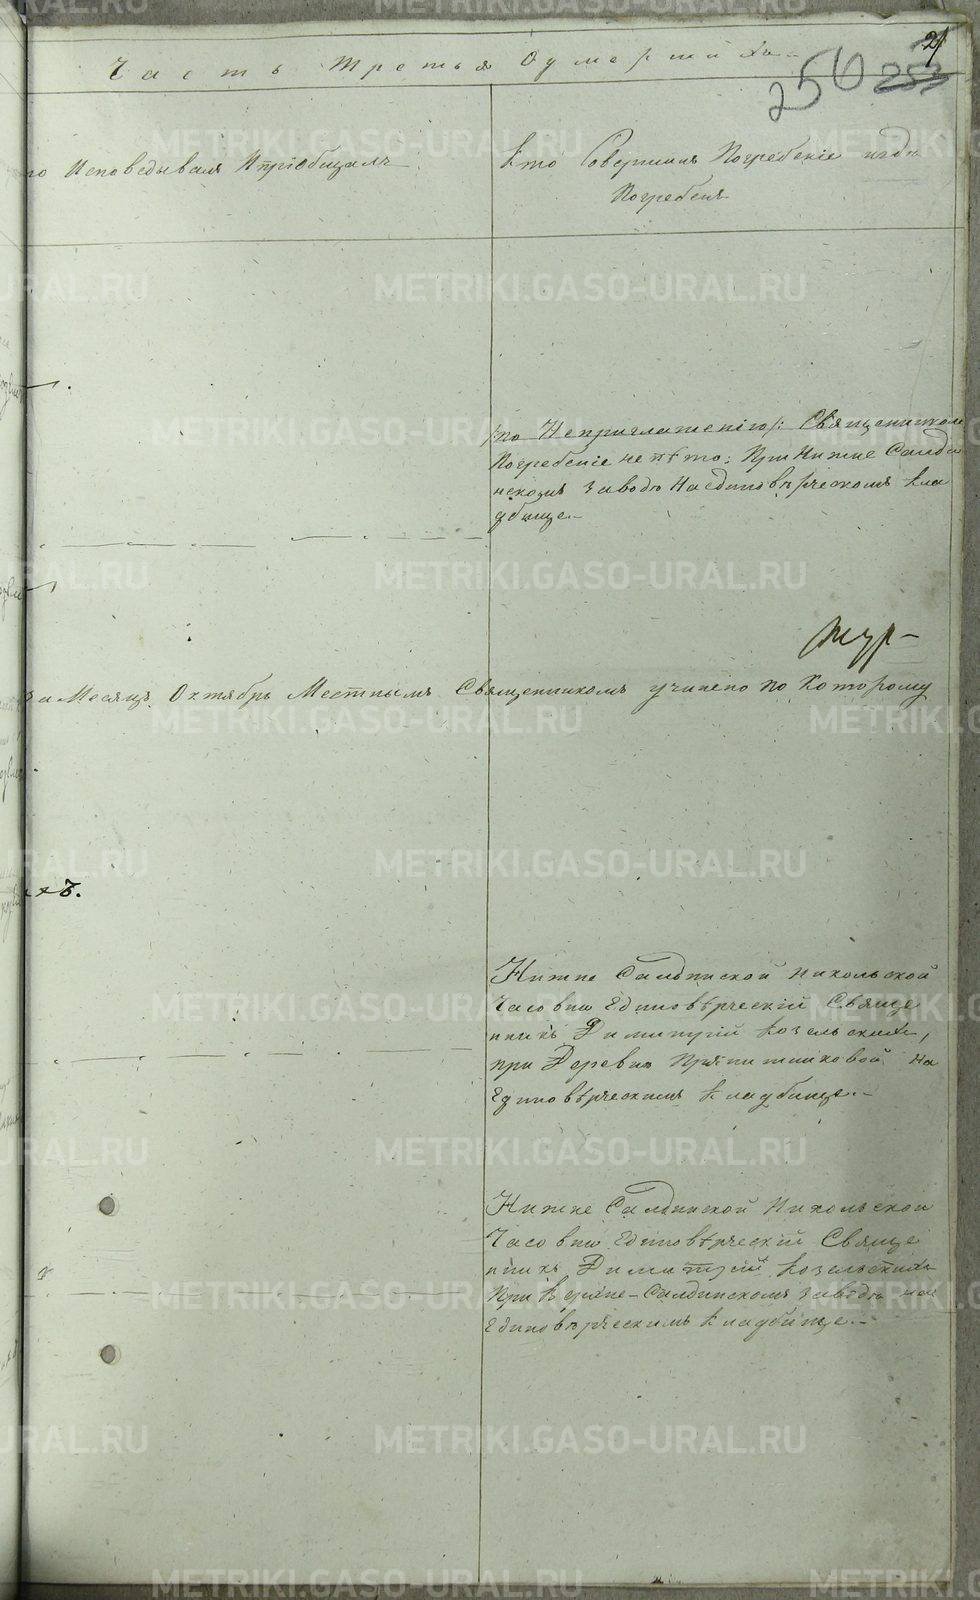 21
Часть Третья Оумершихъ
256 253
Исповедывалъ И пріобщалъ
Кто Совершалъ Погребеніе и гдѣ
Погребенъ
/:по Неприглашенію:/ Священникомъ
Погребеніе не пѣто: При Нижне Салди
нскомъ заводѣ На единовѣрческомъ кла
дбище.-
за Месяцъ Октябрь Местнымъ Священникомъ учинено по которому
хъ.
Нижне Салдинской Никольской
Часовни Единовѣрческій Свяще
нникъ Димитрій Козельскихъ,
при Деревне Прянишниковой На
Единовѣрческимъ Кладбище.-
Нижне Салдинской Никольской
Часовни Единовѣрческій Свяще
нникъ Димитрій Козельскихъ
При Верхне-Салдинскомъ заводѣ на
Единовѣрческимъ Кладбище.-
METRIKI.GASO-URAL.RU